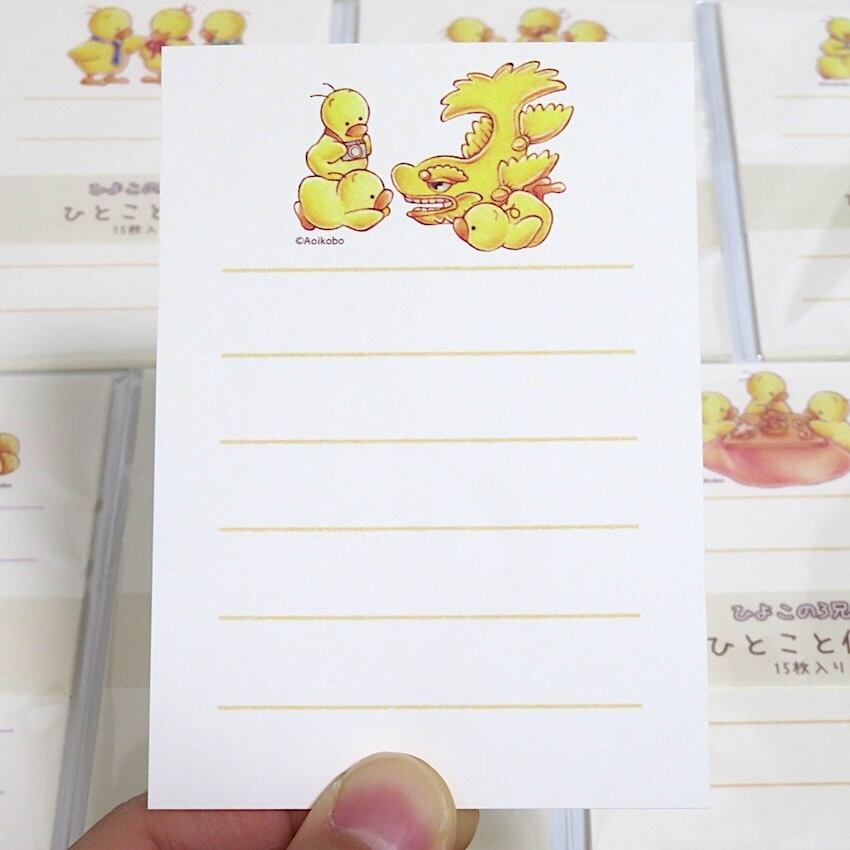 ©Aoikobo
ひよこの
ひとこと
15枚入
ひよこの3兄
ひとことイ
15枚入り